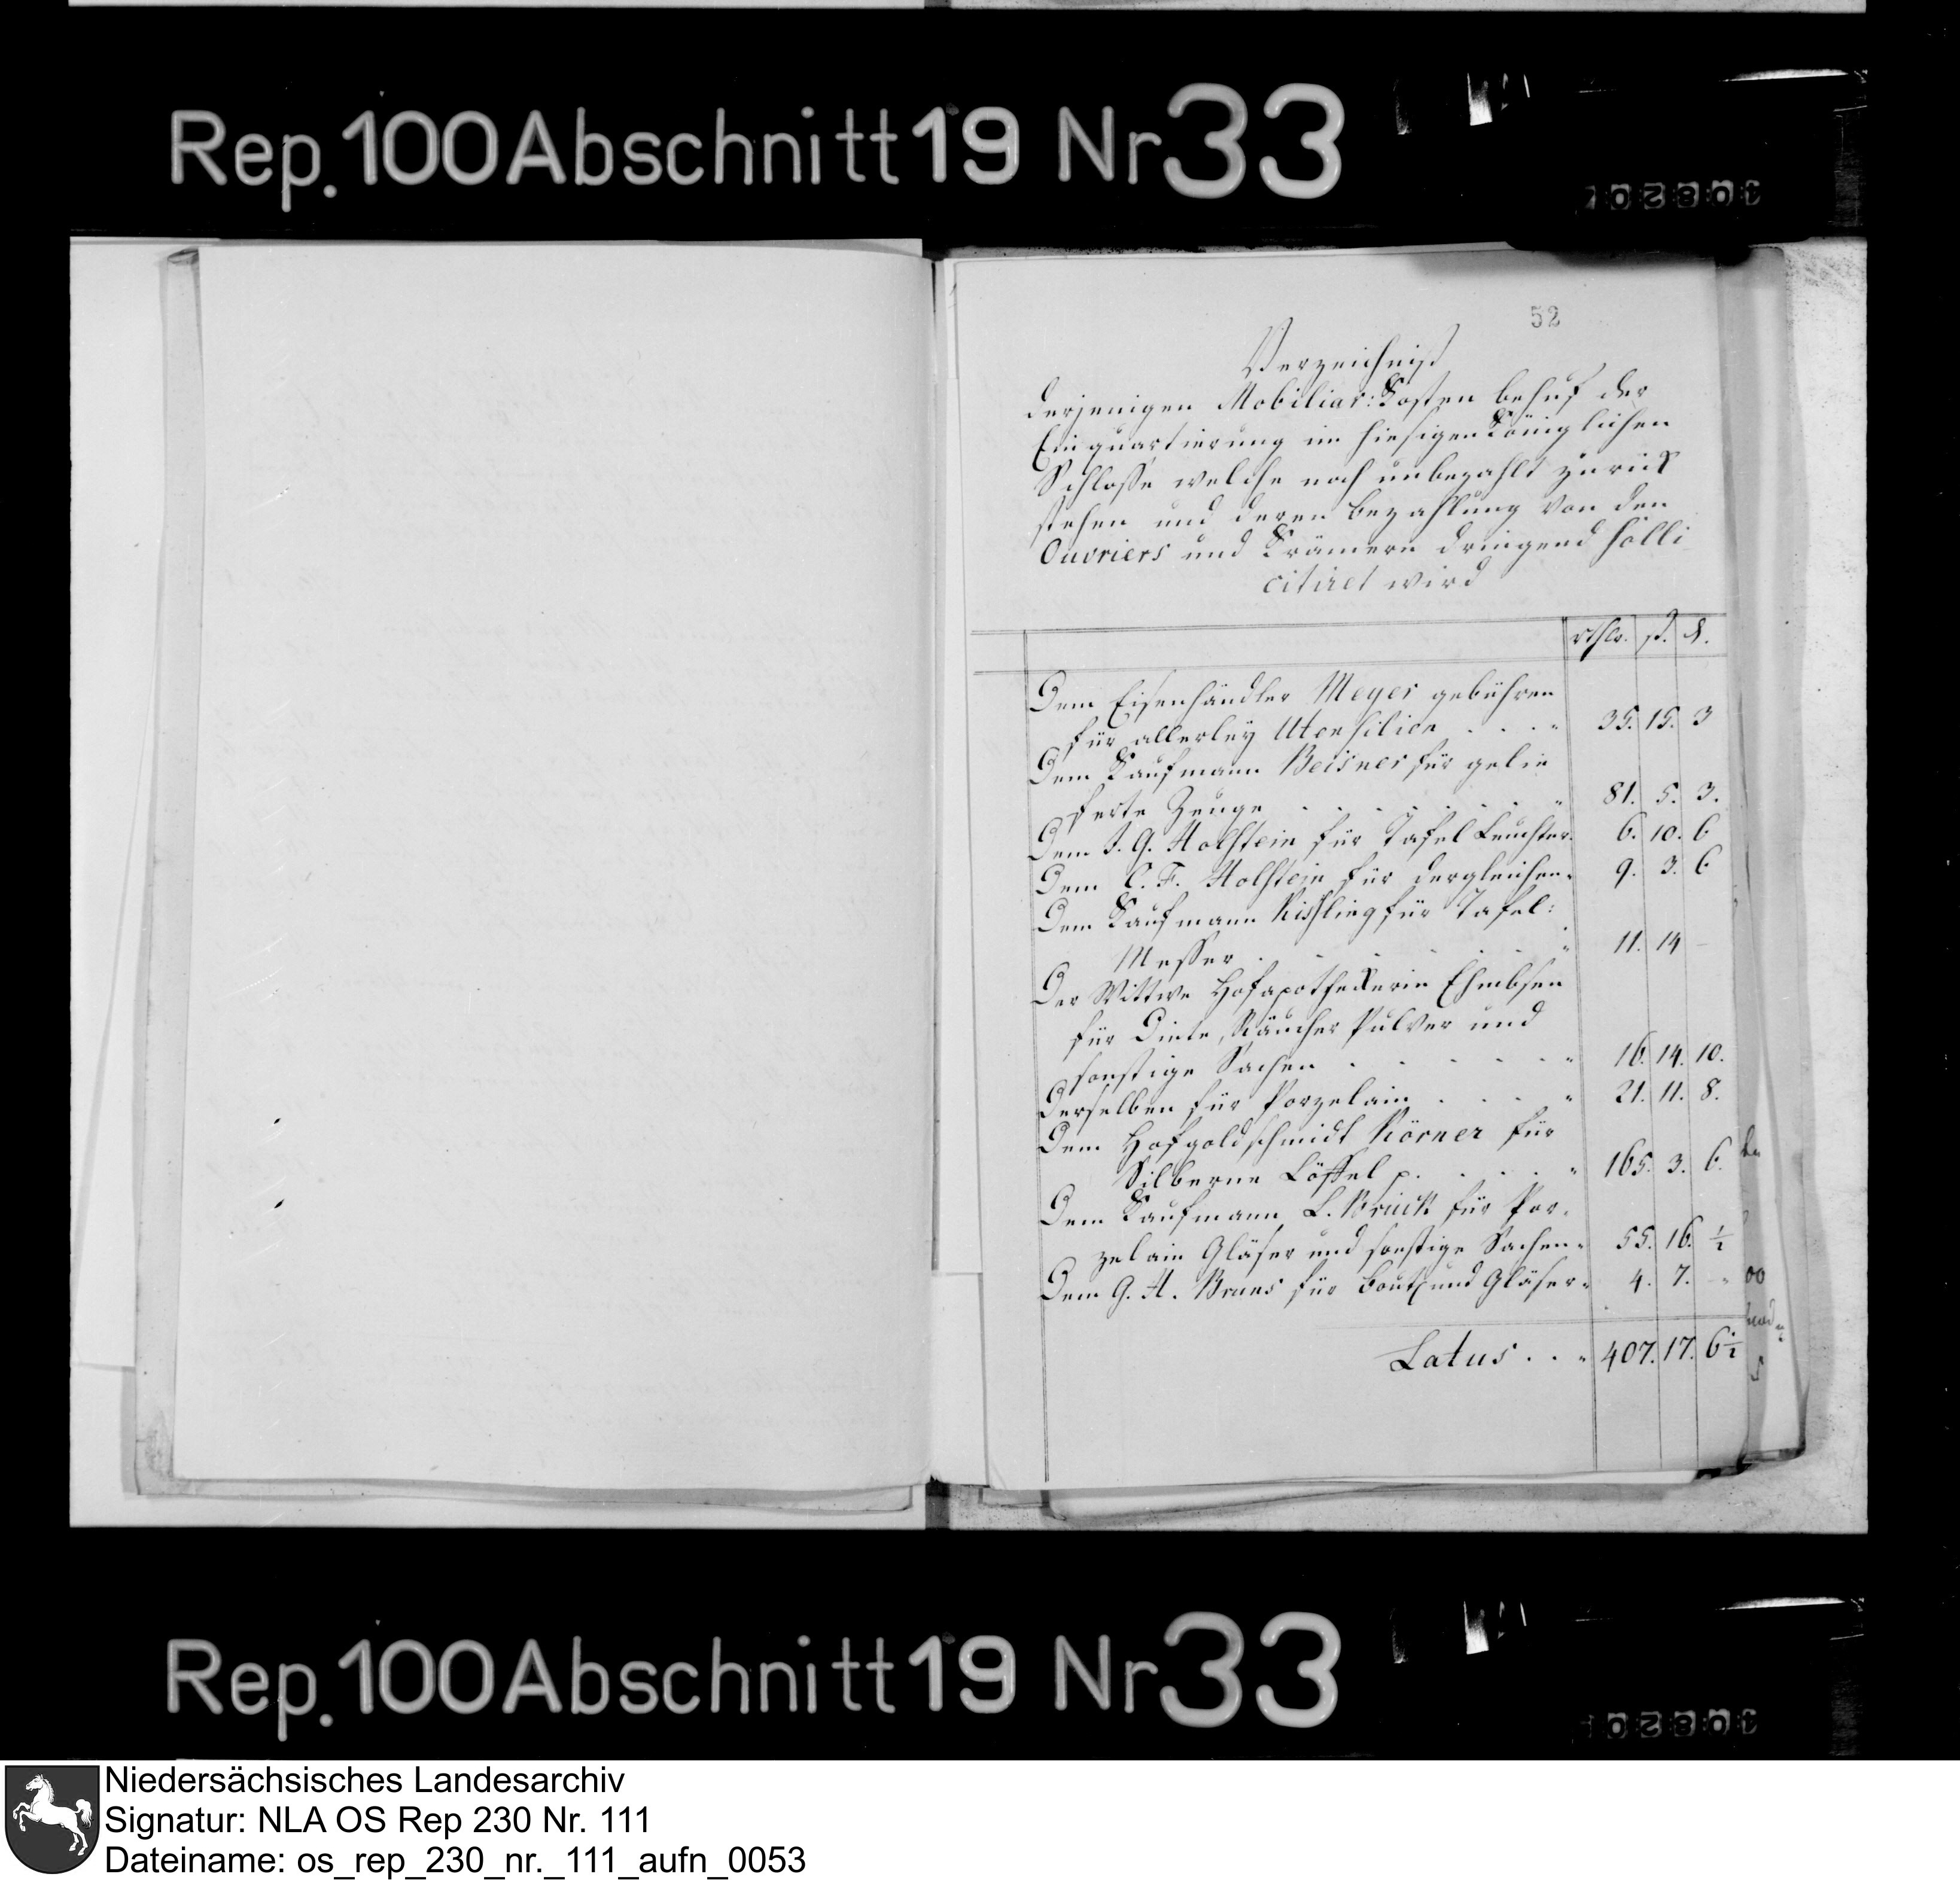 Rep.100 Abschnitt 19 Nr 33
52
Verzeichniß
derjenigen Mobiliar: Kosten behuf der
Einquartierung im hiesigen Königlichen
Schlosse welche noch unbezahlt zurück
stehen und deren bezahlung von den
Ouvriers und Krämern dringend solli
citiret wird
rthlr. ß. d.
Dem Eisenhändler Meyer gebühren
für allerley Utensilien . . . . 35. 15. 3
Dem Kaufmann Beisner für gelie
ferte Zeuge . . . . . . . 81. 5. 3.
Dem J. G. Holstein für Tafel Leuchter. 6. 10. 6
Dem C. F. Holstein für dergleichen. 9. 3. 6
Dem Kaufmann Kissling für Tafel:
Messer . . . . . . . 11. 14 –
Der Wittwe Hofapothekerin Ehmbsen
für Dinte, Räucher Pulver und
sonstige Sachen . . . . . . 16. 14. 10.
Derselben für Porzelain . . . . 21. 11. 8.
Dem Hofgoldschmidt Körner für
Silberne Löffel p. . . . . 165. 3. 6.
Dem Kaufmann L. Bruck für Por.
zelain Gläser und sonstige Sachen. 55. 16. ½
Dem G. H. Bruns für bout und Gläser. 4. 7. –
Latus . . . 407. 17. 6½
Rep.100 Abschnitt 19 Nr 33
Niedersächsisches Landesarchiv
Signatur: NLA OS Rep 230 Nr. 111
Dateiname: os_rep_230_nr._111_aufn_0053